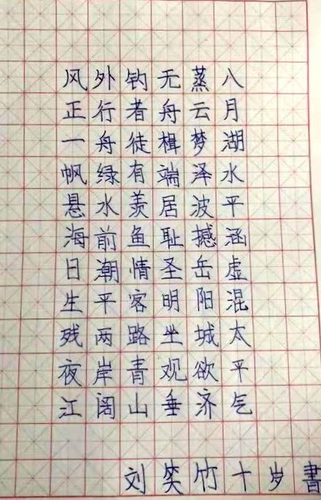 八月湖水平涵虚混太平气
蒸云梦泽波撼岳阳城欲济
无舟楫端居耻圣明坐观垂
钓者徒有羡鱼情客路青山
外行舟绿水前潮平两岸阔
风正一帆悬海日生残夜江
刘笑竹十岁書